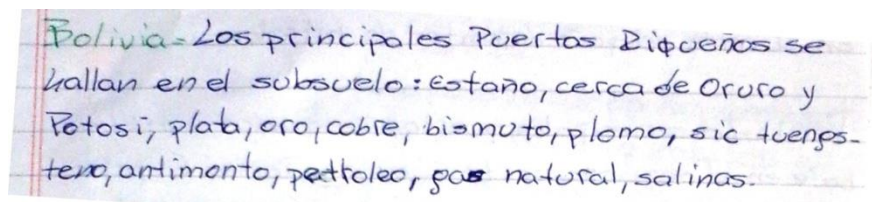 Bolivia = Los principales Puertos Riqueños se
hallan en el subsuelo: Estaño, cerca de Oruro y
Potosi, plata, oro, cobre, bismuto, plomo, sic tuengs-
teno, antimonto, pettoleo, gas natural, salinas.